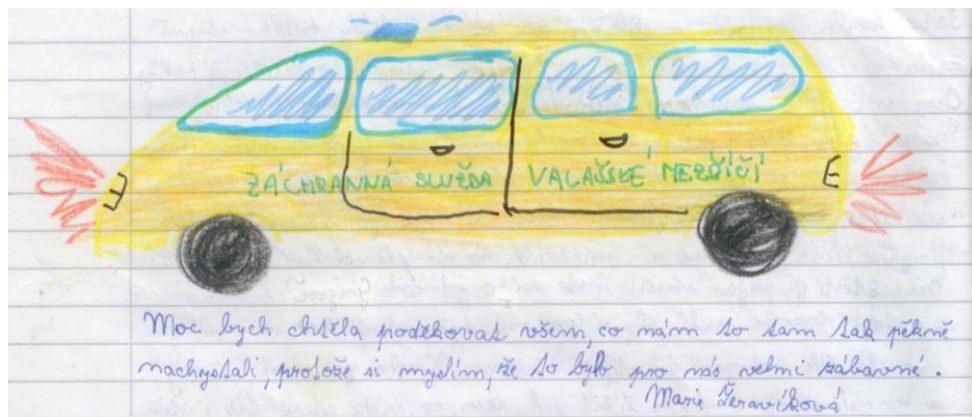 ZÁCHRANNÁ SLUŽBA VALAŠSKÉ MEZIŘÍČÍ
Moc bych chtěla poděkovat všem, co nám to tam tak pěkně
nachystali, protože si myslím, že to bylo pro nás velmi zábavné.
Marie Žeravíková